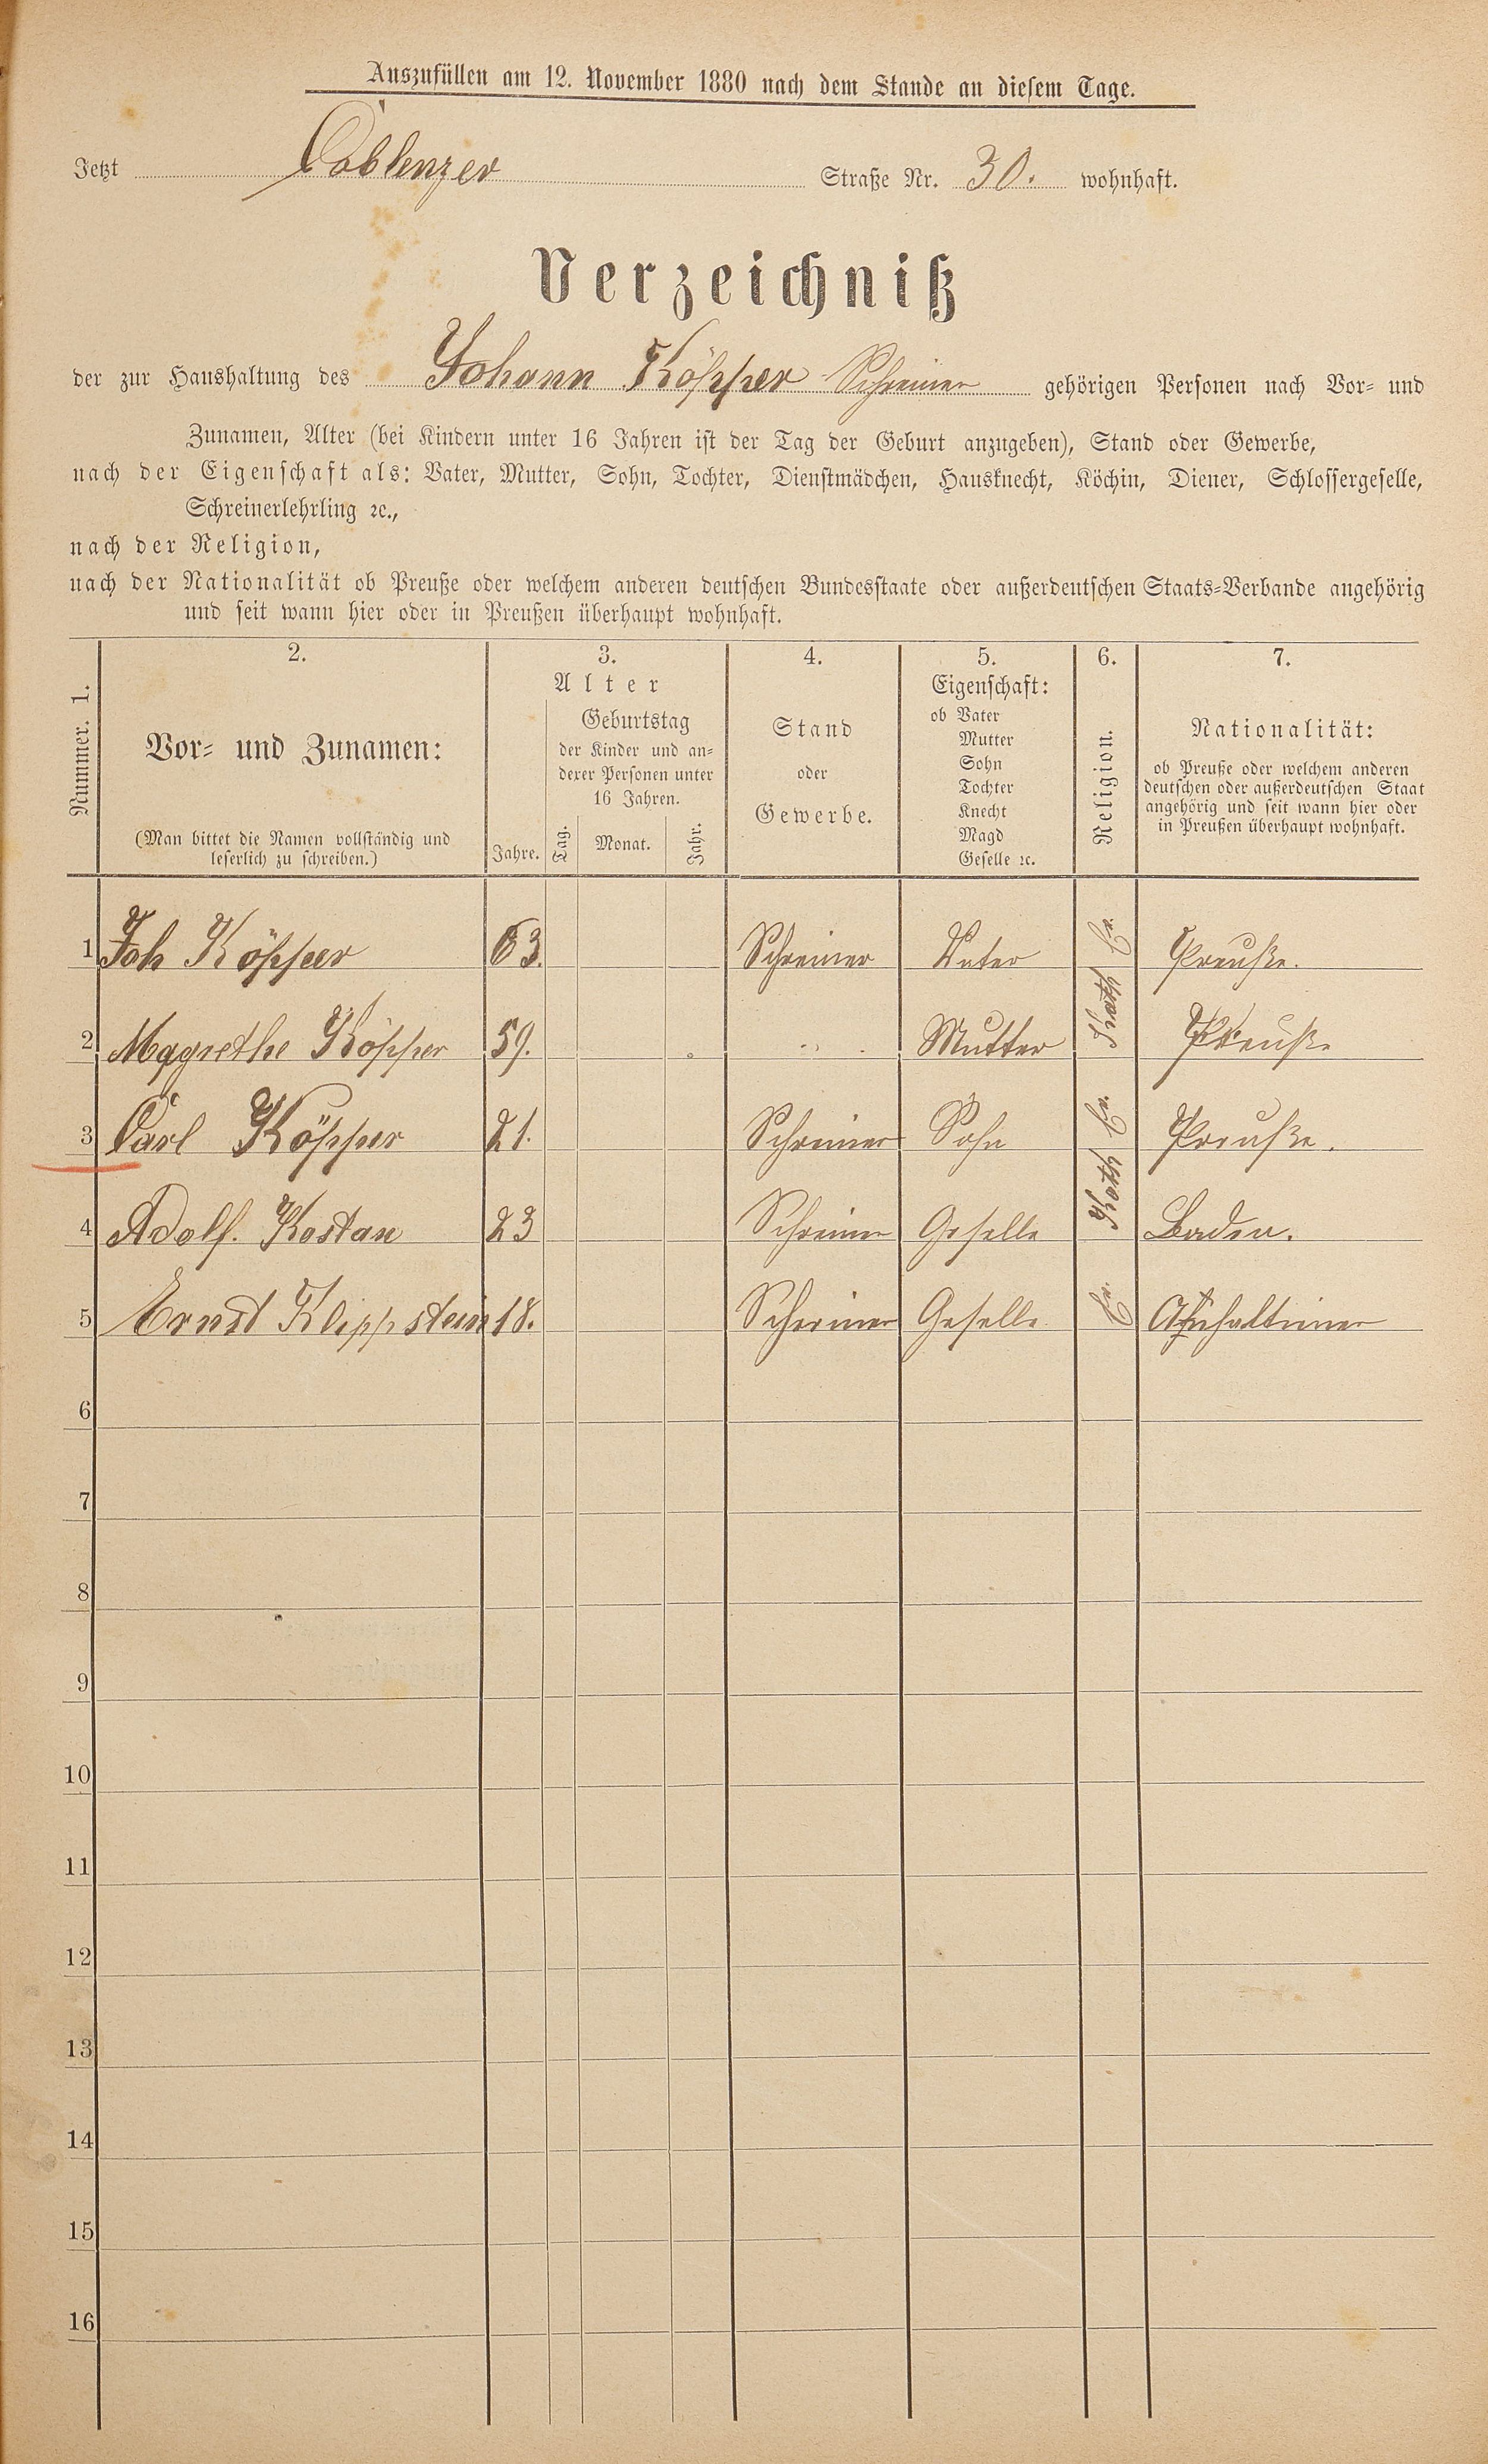 Auszufüllen am 12. November 1880 nach dem Stande an diesem Tage.
Jetzt Coblenzer Straße Nr. 30. wohnhaft.
Verzeichniß
der zur Haushaltung des Johann Köpper Schreiner gehörigen Personen nach Vor- und
Zunamen, Alter (bei Kindern unter 16 Jahren ist der Tag der Geburt anzugeben), Stand oder Gewerbe,
nach der Eigenschaft als: Vater, Mutter, Sohn, Tochter, Dienstmädchen, Hausknecht, Köchin, Diener, Schlossergeselle,
Schreinerlehrling ꝛc.,
nach der Religion,
nach der Nationalität ob Preuße oder welchem anderen deutschen Bundesstaate oder außerdeutschen Staats-Verbande angehörig
und seit wann hier oder in Preußen überhaupt wohnhaft.
Nummer. 1.
2.
Vor- und Zunamen:
(Man bittet die Namen vollständig und
leserlich zu schreiben.)
3.
Alter
Jahre.
Geburtstag
der Kinder und an-
derer Personen unter
16 Jahren.
Tag. Monat. Jahr.
4.
Stand
oder
Gewerbe.
5.
Eigenschaft:
ob Vater
Mutter
Sohn
Tochter
Knecht
Magd
Geselle ꝛc.
6.
Religion.
7.
Nationalität:
ob Preuße oder welchem anderen
deutschen oder außerdeutschen Staat
angehörig und seit wann hier oder
in Preußen überhaupt wohnhaft.
1 Joh Köpper 63. Schreiner Vater Ev. Preuße.
2 Magrethe Köpper 59. Mutter Kath Preuße
3 Carl Köpper 21. Schreiner Sohn Ev. Preuße.
4 Adolf. Kostan 23 Schreiner Geselle Kath Baden.
5 Ernst Klippstein 18. Schreiner Geselle Ev. Anhaltiner
6
7
8
9
10
11
12
13
14
15
16